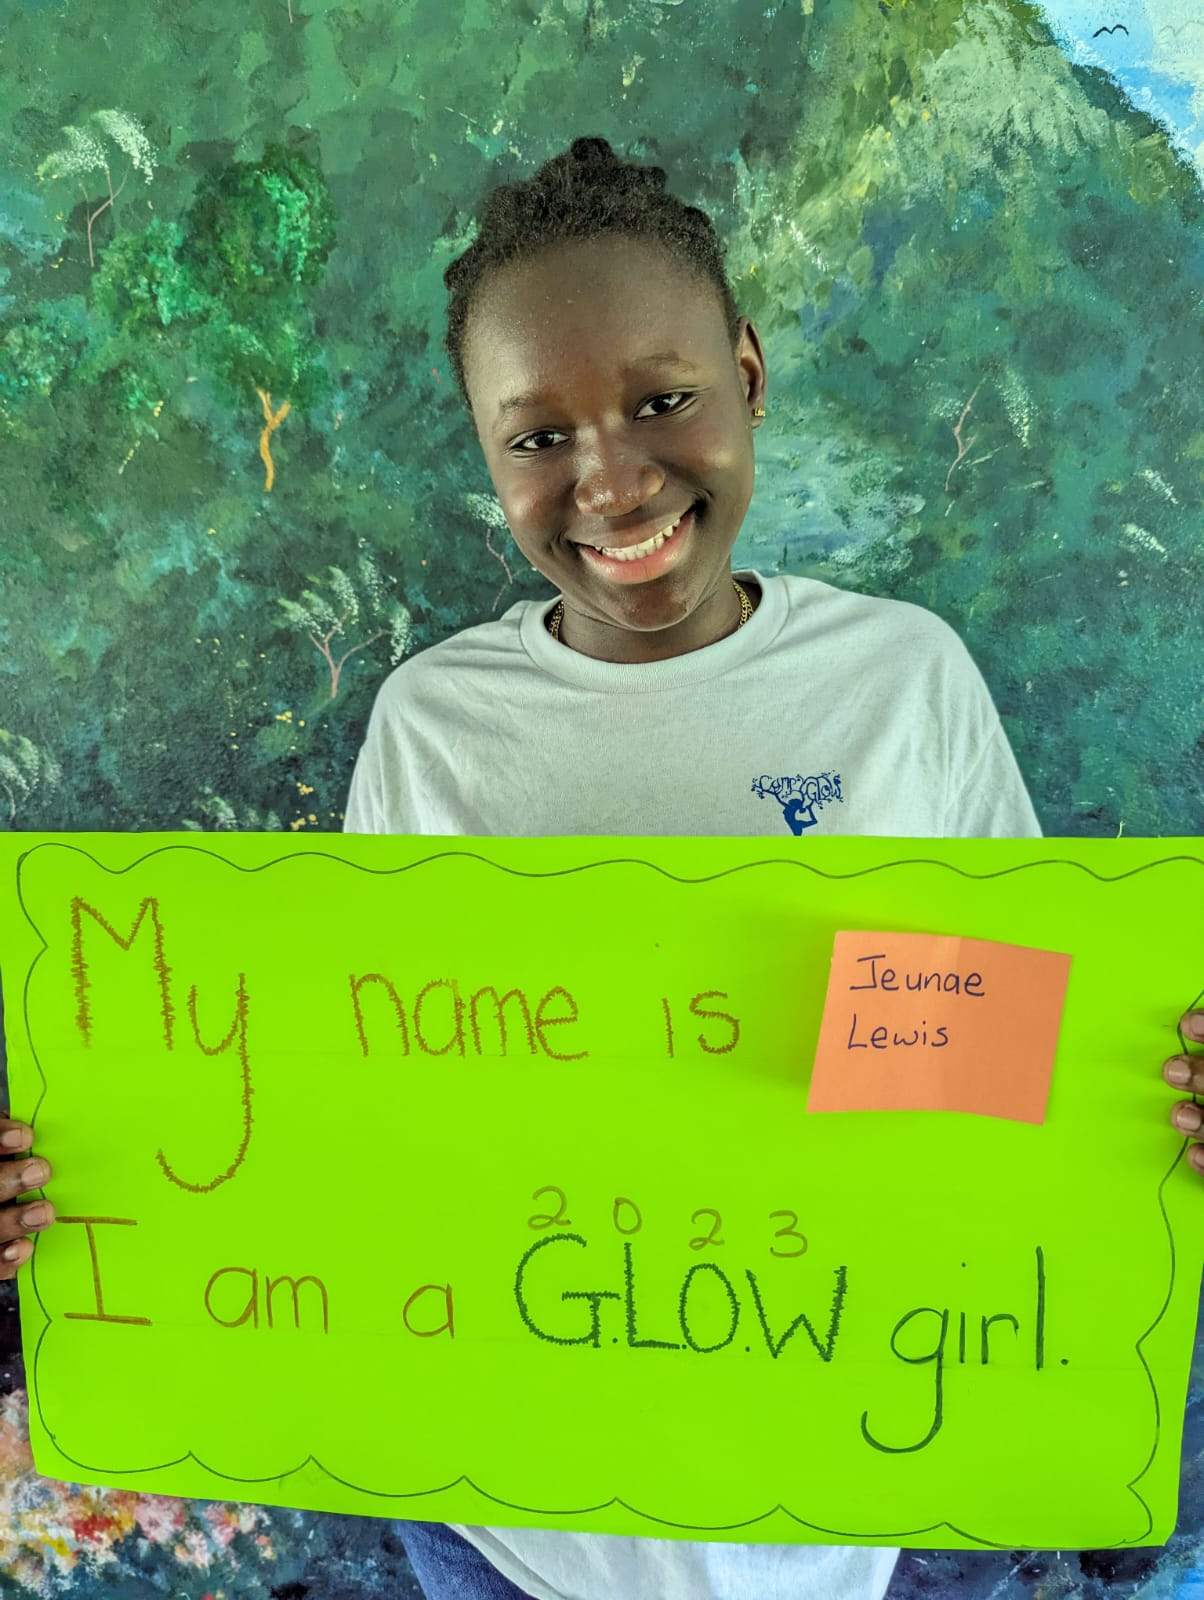 Camp GLOW
My name is
Jeunae
Lewis
2023
I am a G.L.O.W girl.